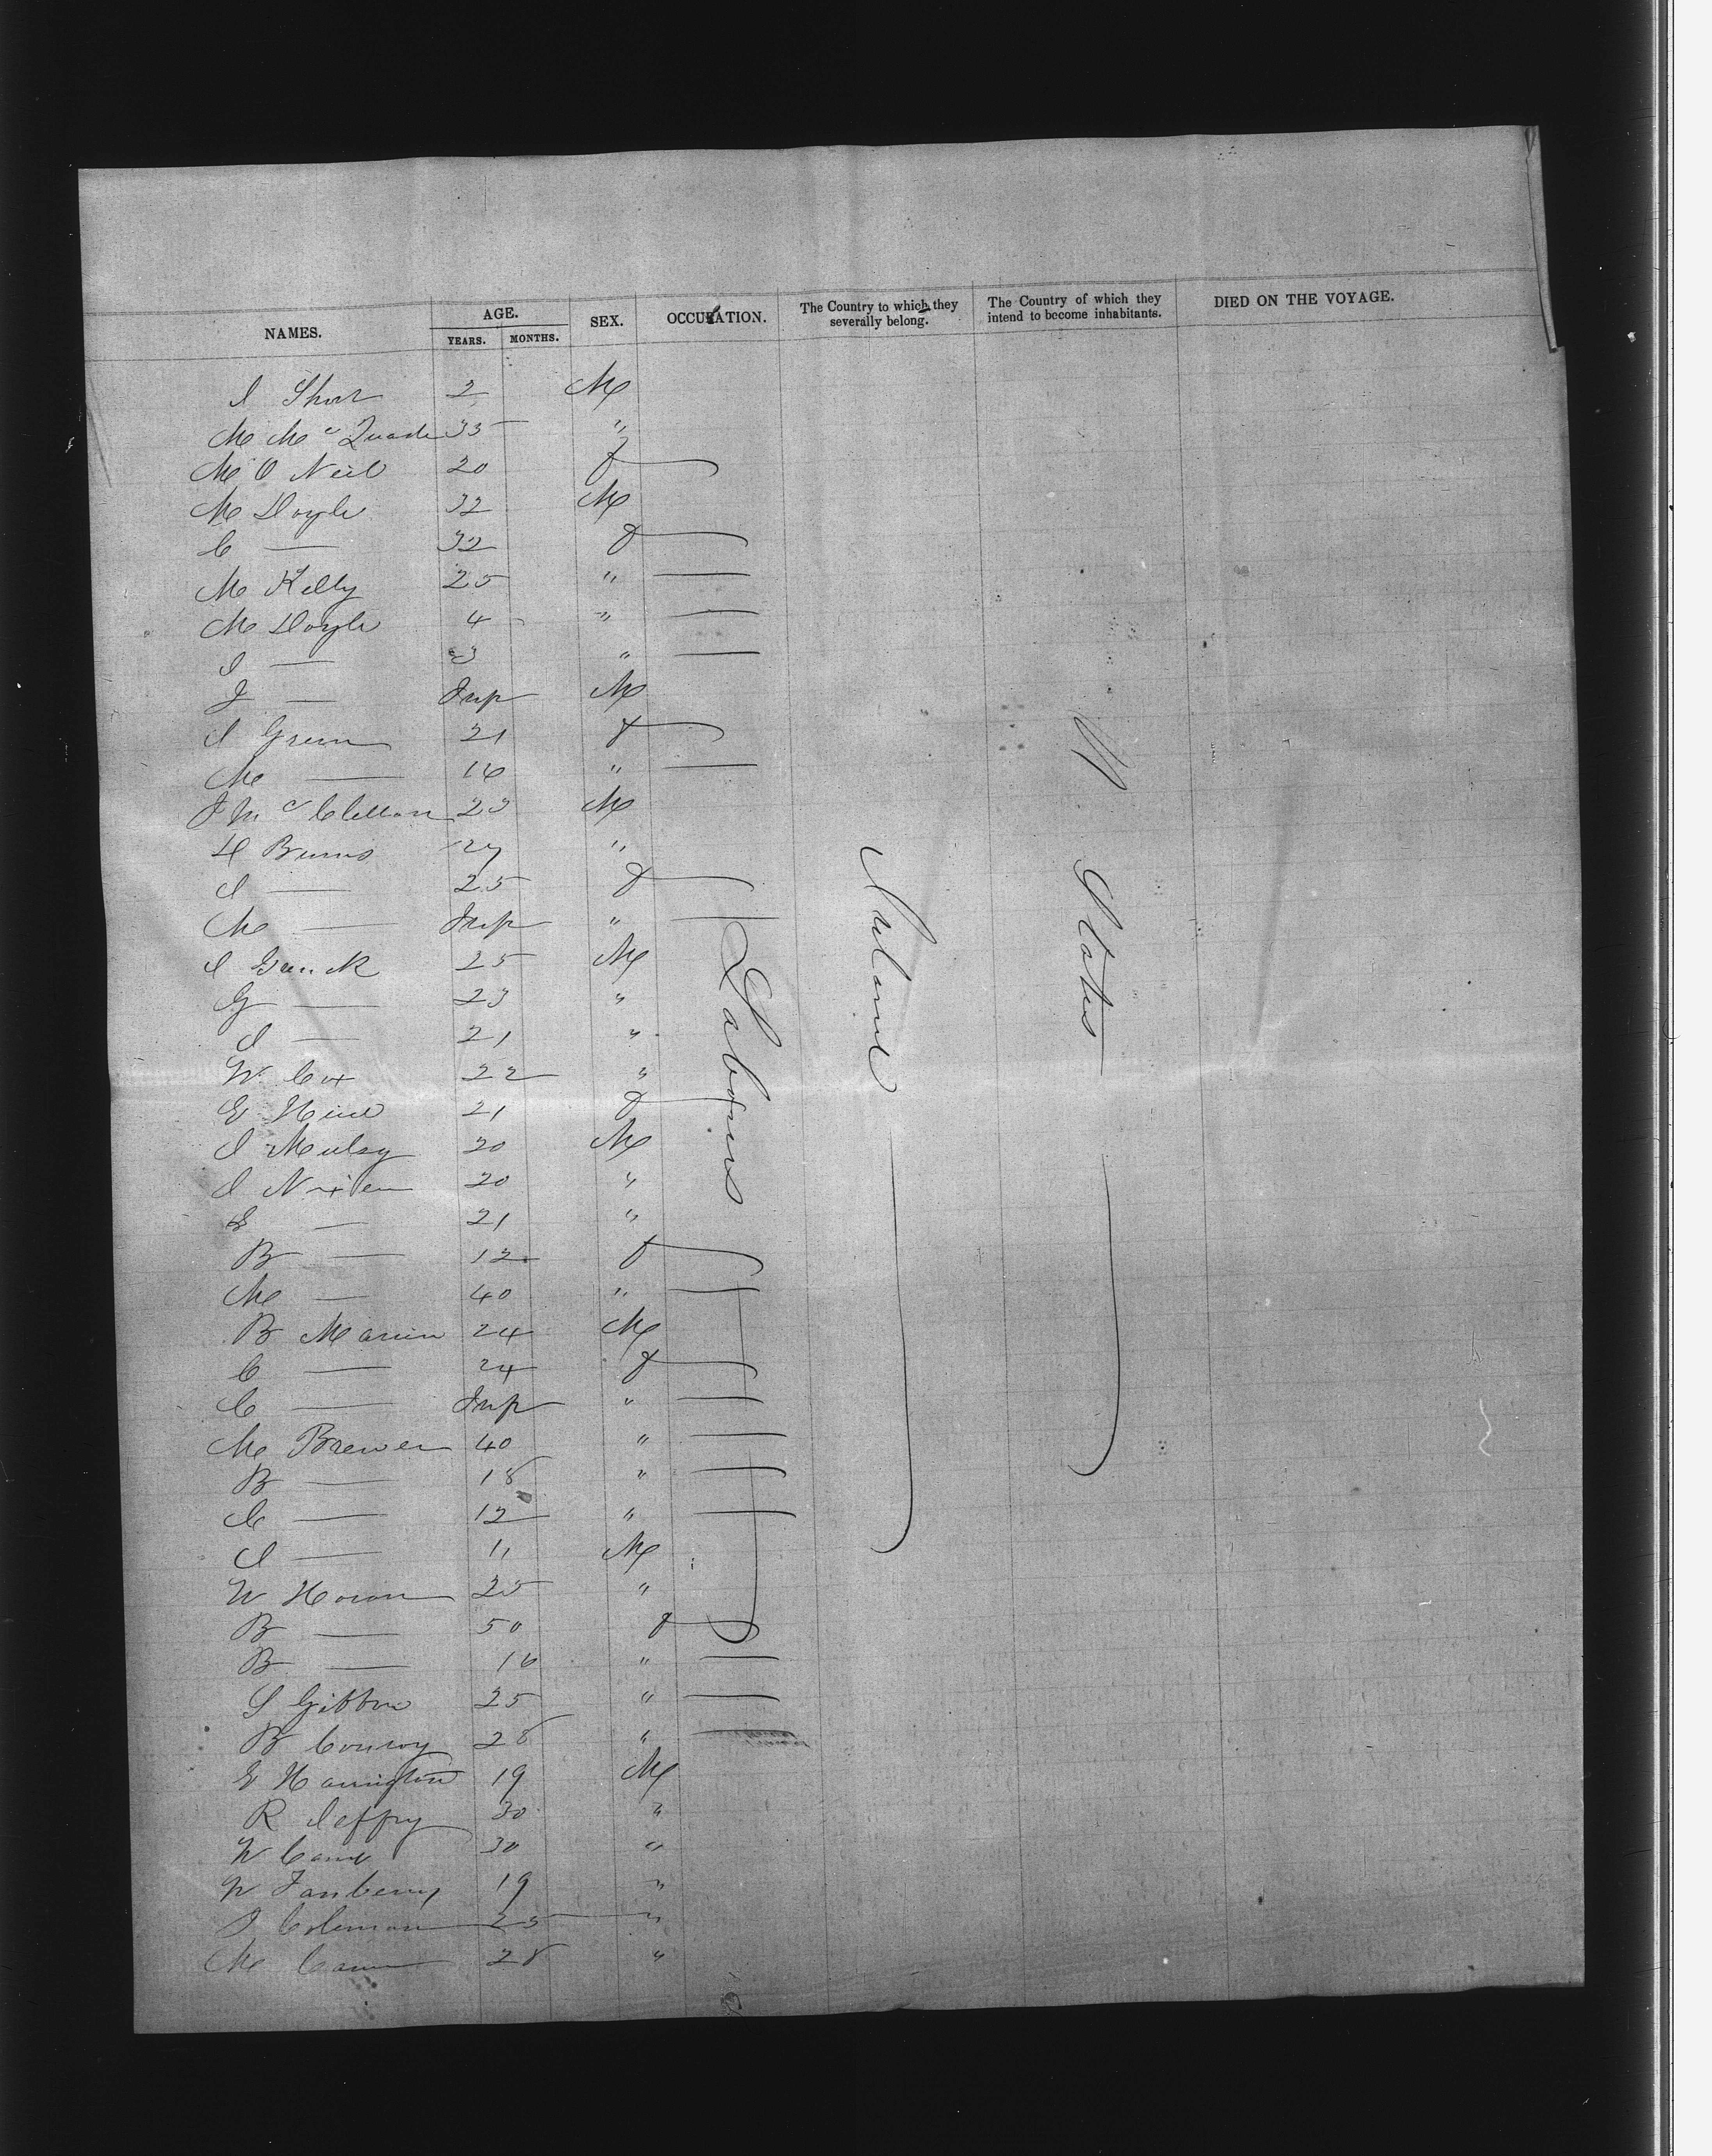 NAMES. AGE. SEX. OCCUPATION. The Country to which they severally belong. The Country of which they intend to become inhabitants. DIED ON THE VOYAGE.
YEARS. MONTHS.
J Short 2 M
M McQuade 35 "
M O Neil 20 f
M Doyle 32 M
C — 32 f
M Kelly 25 " —
M Doyle 4 " —
J — 3 " —
J — Inf M
J Green 21 f
M — 16 " —
J McClellan 23 M
H Burns 27 "
J — 25 f
M — Inf " —
J 25 M
G — 23 "
J — 21 "
W Cox 22 "
E 21 f
J 20 M
J 20 "
S — 21 "
B — 12 f
M — 40 " —
B 24 M
C — 24 f
C — Inf " —
M Brewer 40 " —
B — 18 " —
C — 12 " —
J — 11 M
W Horan 25 "
B — 50 f
B — 16 " —
S Gibbon 25 " —
B Conroy 28 "
E Harrington 19 M
R Jeffry 30 "
W 30 "
W 19 "
J Coleman 25 "
M 28 "
Laborers
Ireland
U States